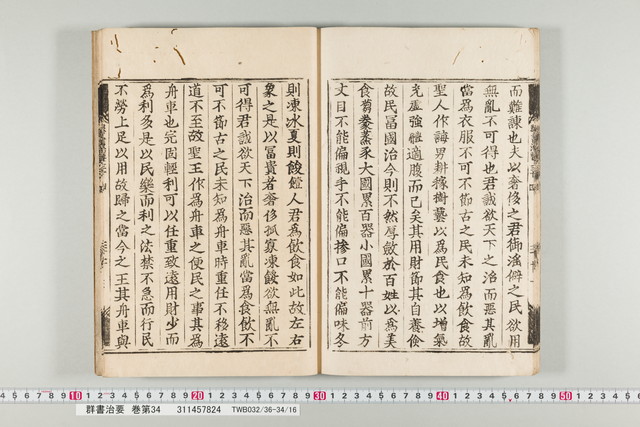 而難諫也夫以奢侈之君御淫僻之民欲用
無亂不可得也君誠欲天下之治而惡其亂
當為衣服不可不節古之民未知為飲食故
聖人作誨男耕稼樹藝以為民食也以增氣
充虛強體適腹而已矣其用財節其自養儉
故民富國治今則不然厚斂於百姓以為美
食芻豢蒸炙大國累百器小國累十器前方
丈目不能偏視手不能偏操口不能偏味冬
則凍冰夏則餕饐人君為飲食如此故左右
象之是以富貴者奢侈孤寡凍餒欲無亂不
可得君誠欲天下治而惡其亂當為食飲不
可不節古之民未知為舟車時重任不移遠
道不至故聖王作為舟車之便民之事其為
舟車也完固輕利可以任重致遠用財少而
為利多是以民樂而利之法禁不急而行民
不勞上足以用故歸之當今之王其舟車與
10 20 30 40 50
群書治要 巻第34 311457824 TWB032/36-34/16